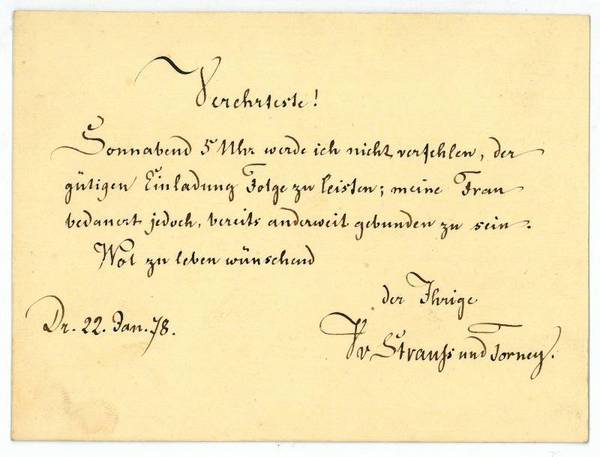 Verehrteste!
Sonnabend 5 Uhr werde ich nicht verfehlen, der
gütigen Einladung Folge zu leisten; meine Frau
bedauert jedoch, bereits anderweit gebunden zu sein.
Wol zu leben wünschend
der Ihrige
Dr. 22. Jan. 78.
Vv Strauß und Torney.